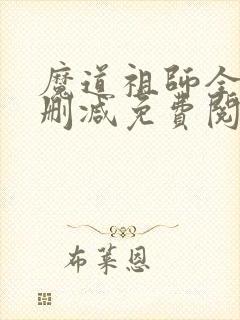 魔道祖師全
刪減免費閱
布萊恩